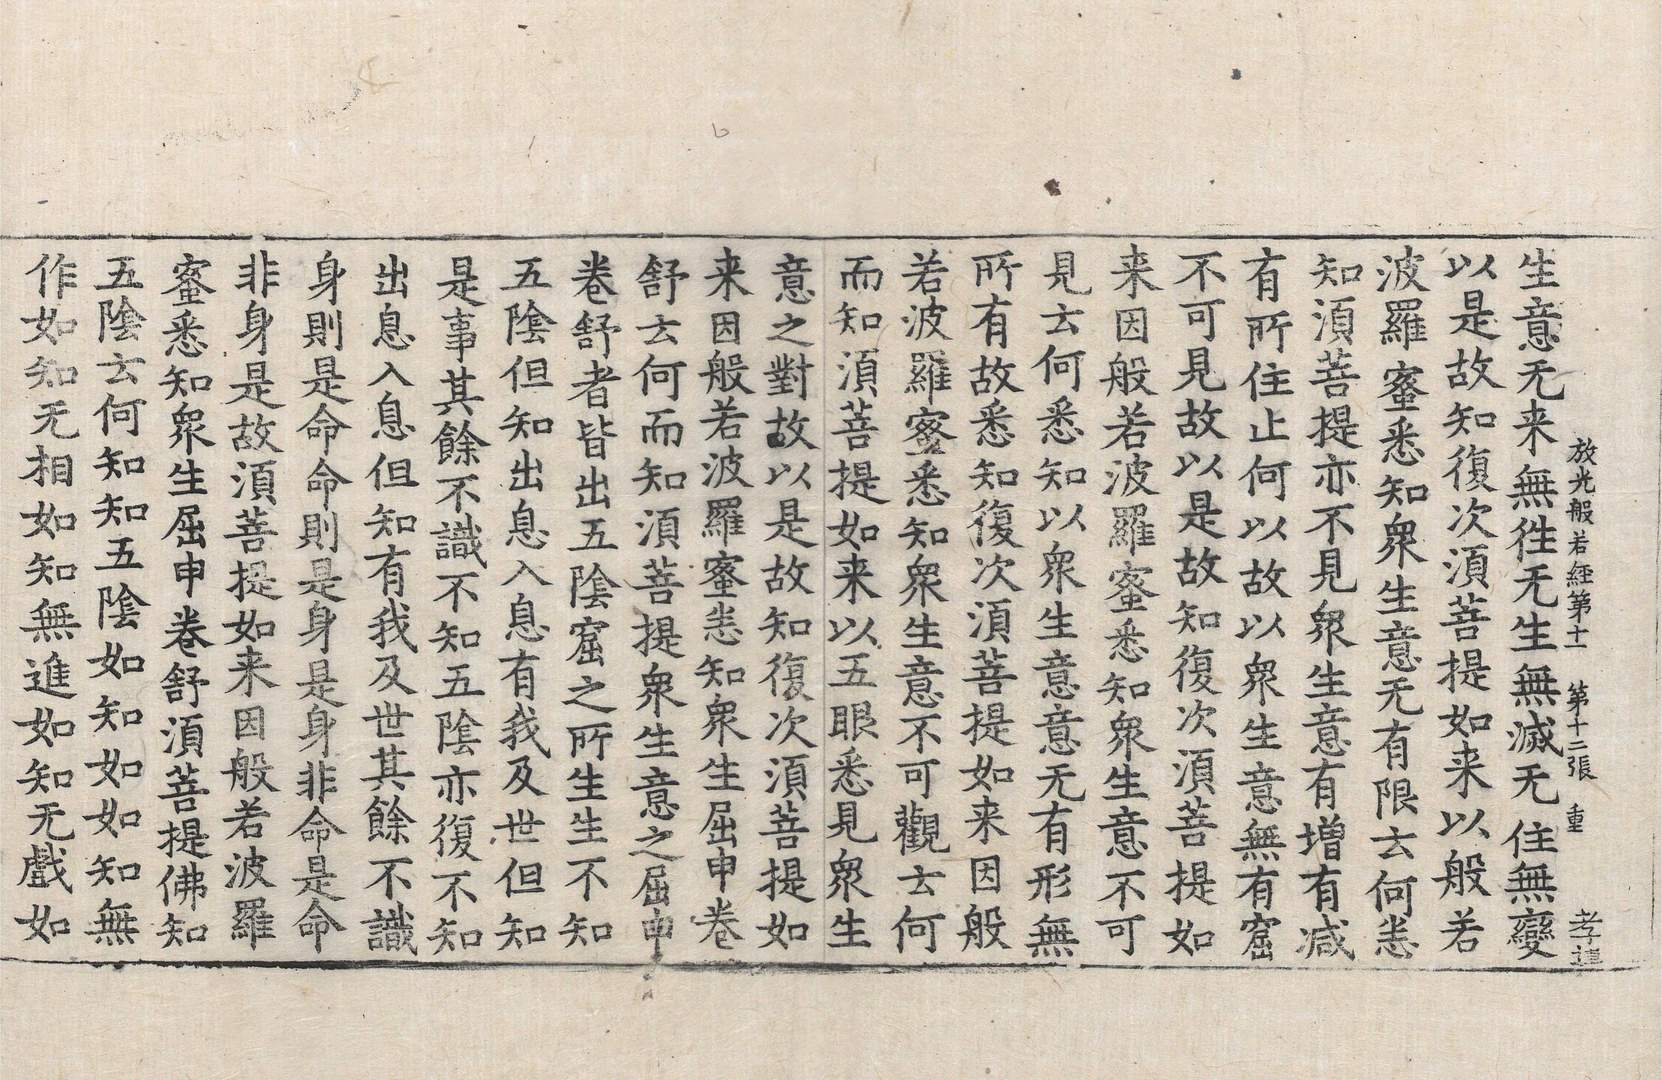 放光般若經第十一 第十二張 重 孝
生意无来無徃无生無滅无住無變
以是故知復次湏菩提如来以般若
波羅蜜悉知衆生意无有限云何悉
知湏菩提亦不見衆生意有增有减
有所住止何以故以衆生意無有窟
不可見故以是故知復次湏菩提如
来因般若波羅蜜悉知衆生意不可
見云何悉知以衆生意意无有形無
所有故悉知復次湏菩提如来因般
若波羅蜜悉知衆生意不可觀云何
而知湏菩提如来以五眼悉見衆生
意之對故以是故知復次湏菩提如
来因般若波羅蜜悉知衆生屈申卷
舒云何而知湏菩提衆生意之屈申
卷舒者皆出五陰窟之所生生不知
五陰但知出息入息有我及世但知
是事其餘不識不知五陰亦復不知
出息入息但知有我及世其餘不識
身則是命命則是身是身非命是命
非身是故湏菩提如来因般若波羅
蜜悉知衆生屈申卷舒湏菩提佛知
五陰云何知知五陰如知如如知無
作如知无相如知無進如知无戲如